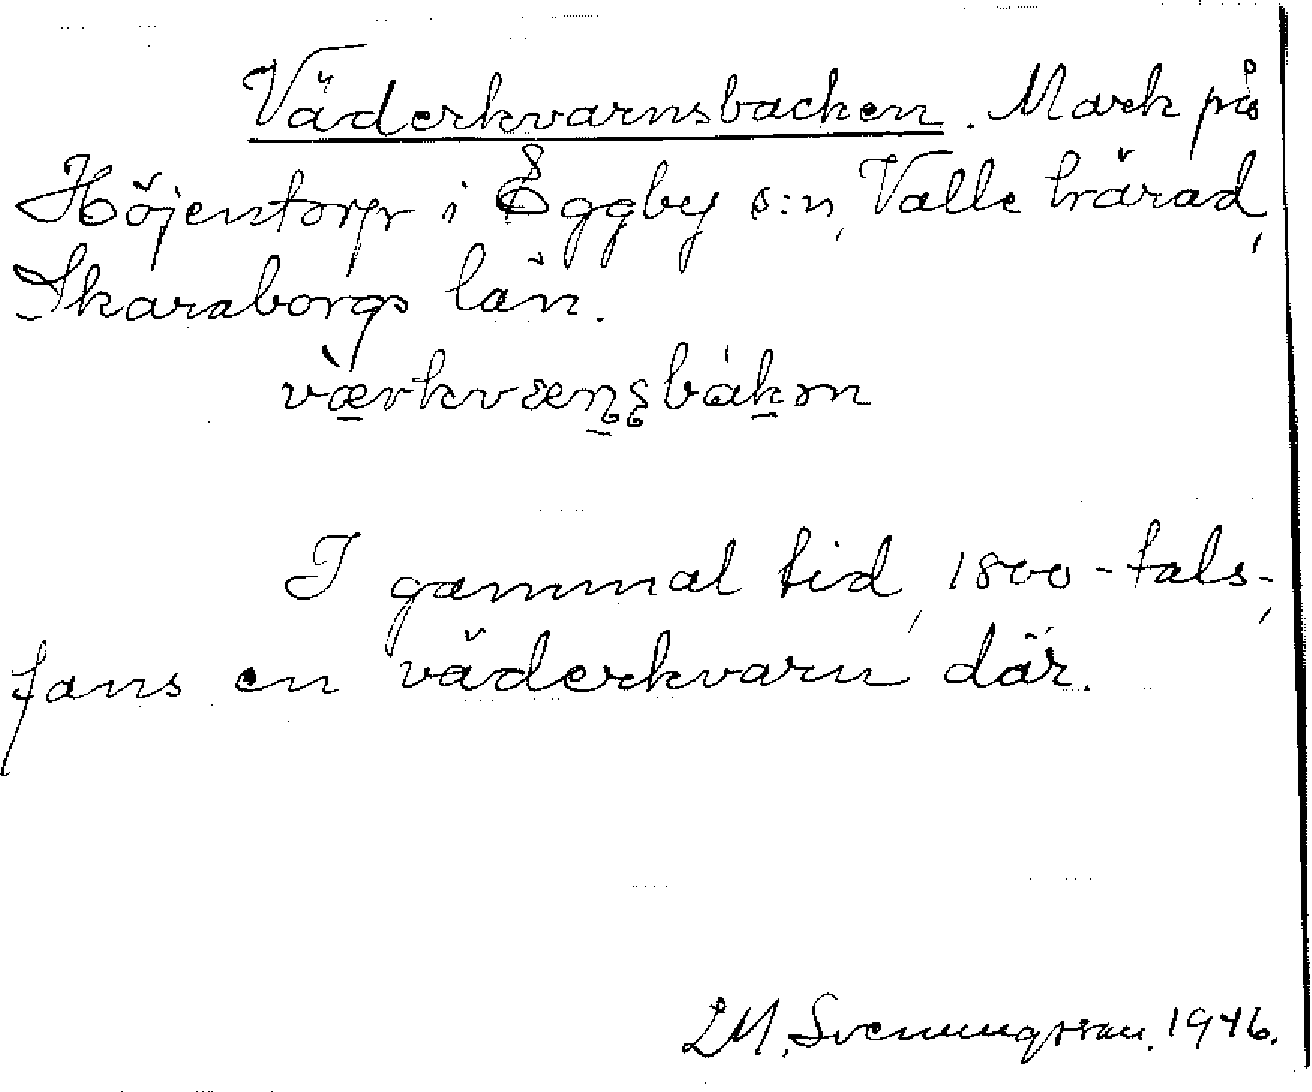 Väderkvarnsbacken. Mark på
Höjentorp i Eggby s:n, Valle härad,
Skaraborgs län.
I gammal tid, 1800-tals-,
fans en väderkvarn där.
Svenungsson. 1946.